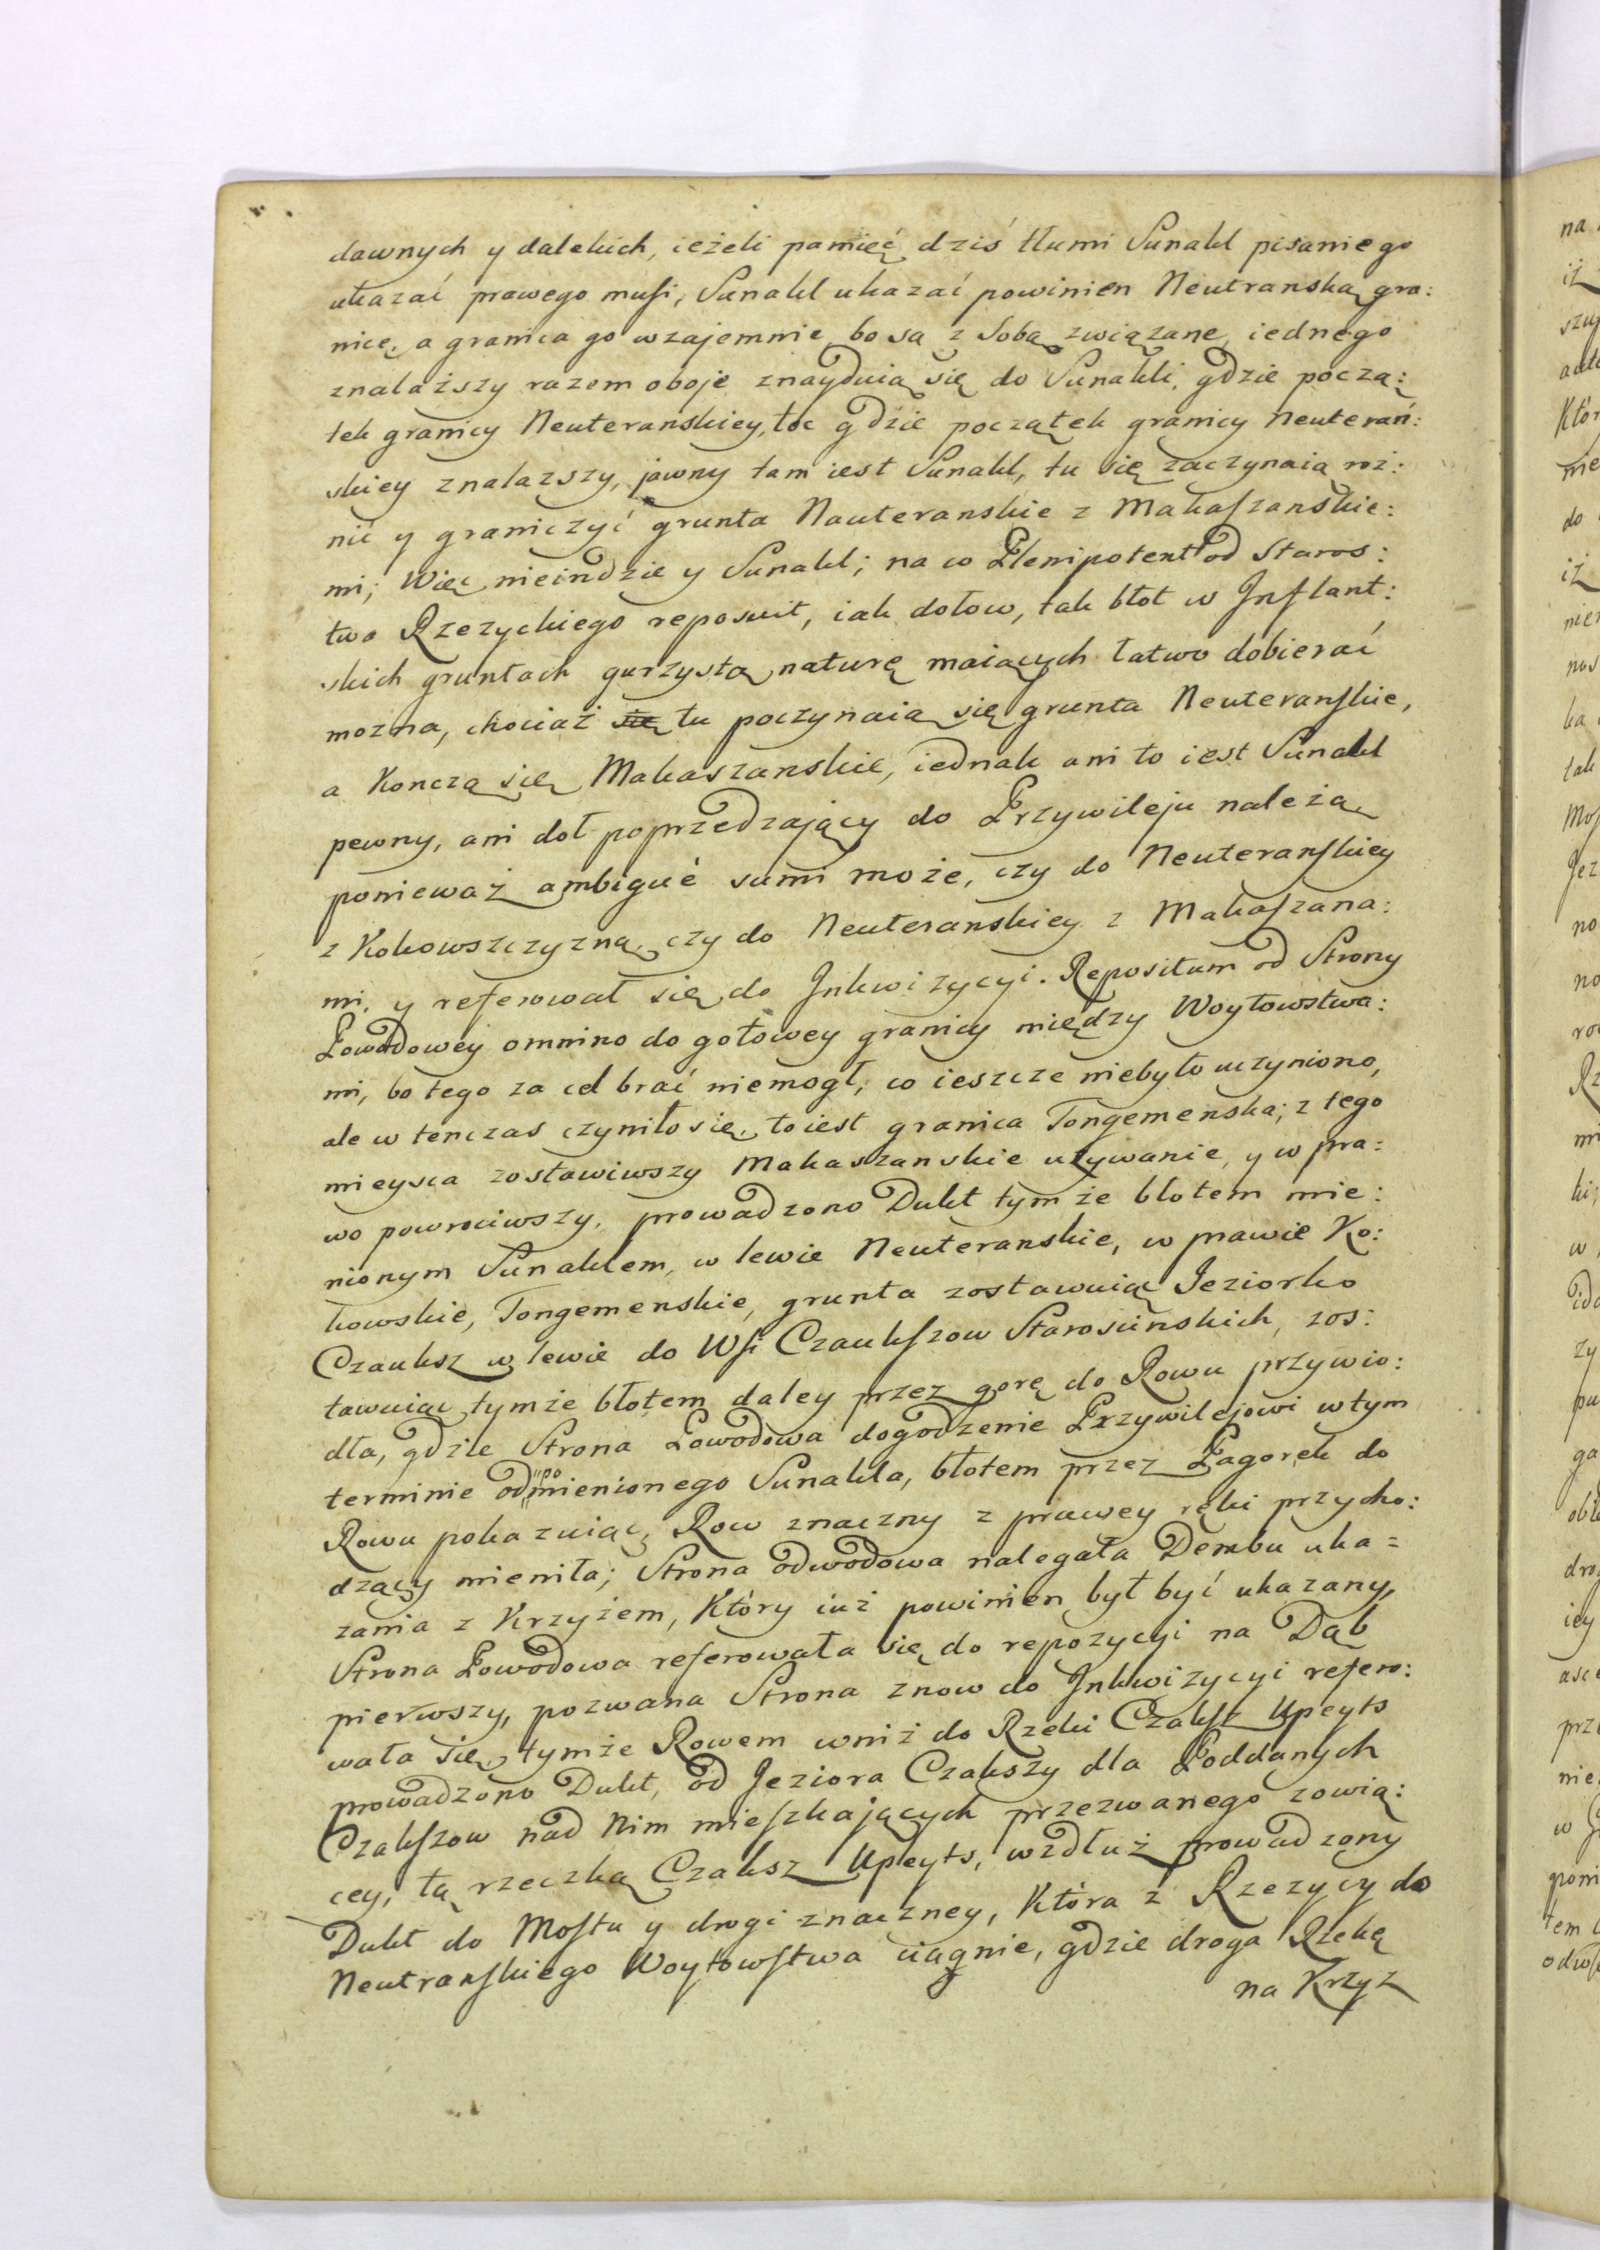 dawnych y dalekich, ieżeli pamięć dziś tłumi Sunakl pisaniego
ukazać prawego musi, Sunakl ukazać powinien Neutranską gra:
nicę, a granica go wzajemnie bo są z sobą związane, iednego
znalaższy razem oboje znayduią się do Sunakli, gdzie począ:
tek granicy Neuteranskiey, toc gdzie początek granicy Neuterań:
skiey znalazszy, jawny tam iest Sunakl, tu się zaczynaią roż:
nić y graniczyć grunta Nauteranskie z Makaszanskie:
mi; Więc nieindzie y Sunakl; na co Plenipotent od Staros:
twa Rzezyckiego reposuit, iak dołow, tak błot w Inflant:
skich gruntach gurzystą naturę maiących łatwo dobierać
mozna, chociaż się tu poczynaią się grunta Neuteranskie,
a Konczą się Makaszanskie, iednak ani to iest Sunakl
pewny, ani doł poprzedzający do Przywileju należą
ponieważ ambiguè sumi może, czy do Neuteranskiey
z Kokowszczyzną, czy do Neuteranskiey z Makaszana:
mi, y referował się do Inkwizycyi. Repositum od Strony
Powodowey omnino do gotowey granicy między Woytowstwa:
mi, bo tego za cel brać niemogł, co ieszcze niebyło uczyniono,
ale w tenczas czyniło się, to iest granica Tongemenska; z tego
mieysca zostawiwszy Makaszanskie używanie, y w pra:
wo powrociwszy, prowadzono Dukt tymże błotem mie:
nionym Sunaklem, w lewie Neuteranskie, w prawie Ko:
kowskie, Tongemenskie, grunta zostawuiąc Jeziorko
Czauksz w lewie do Wsi Czaukszow Starosunskich, zos:
tawuiąc tymże błotem daley przez gorę do Rowu przywio:
dła, gdzie Strona Powodowa dogodzenie Przywilejowi w tym
terminie od pomienionego Sunakla, błotem przez Pagorek do
Rowu pokazuiąc, Row znaczny z prawey ręki przycho:
dzący mieniła; Strona odwodowa nalegała Dembu uka=
zania z Krzyżem, Który iuż powinien był być ukazany,
Strona Powodowa referowała się do repozycyi na Dąb
pierwszy, pozwana Strona znow do Inkwizycyi refero:
wała się, tymże Rowem wniż do Rzeki Czaksz Upeyts
prowadzono Dukt, od Jeziora Czakszy dla Poddanych
Czakszow nad Nim mieszkających przezwanego zowią:
cey, tą rzeczką Czaksz Upeyts, wzdłuż prowadzony
Dukt do Mostu y drogi znaczney, Która z Rzezycy do
Neutranskiego Woytowstwa ciągnie, gdzie droga Rzekę
na Krzyz